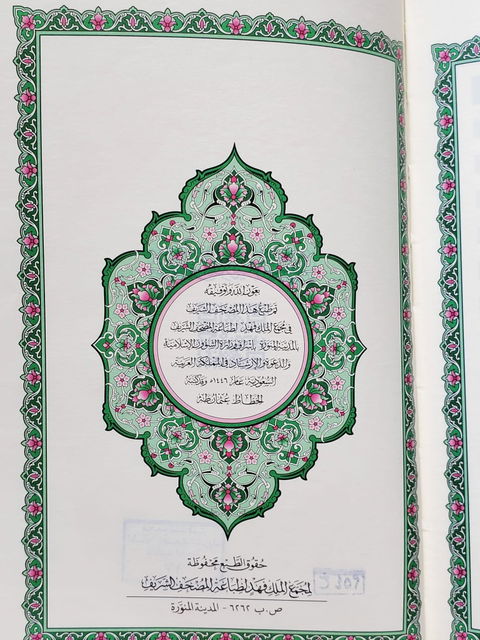 بعون الله وتوفيقه
تم طبع هذا المصحف الشريف
في مجمع الملك فهد لطباعة المصحف الشريف
بالمدينة المنورة بإشراف وزارة الشؤون الإسلامية
والدعوة والإرشاد في المملكة العربية
السعودية عام ١٤٤٦ھ وقد كتبه
الخطاط عثمان طه
حقوق الطبع محفوظة
لمجمع الملك فهد لطباعة المصحف الشريف
ص.ب ٦٢٦٢ - المدينة المنورة